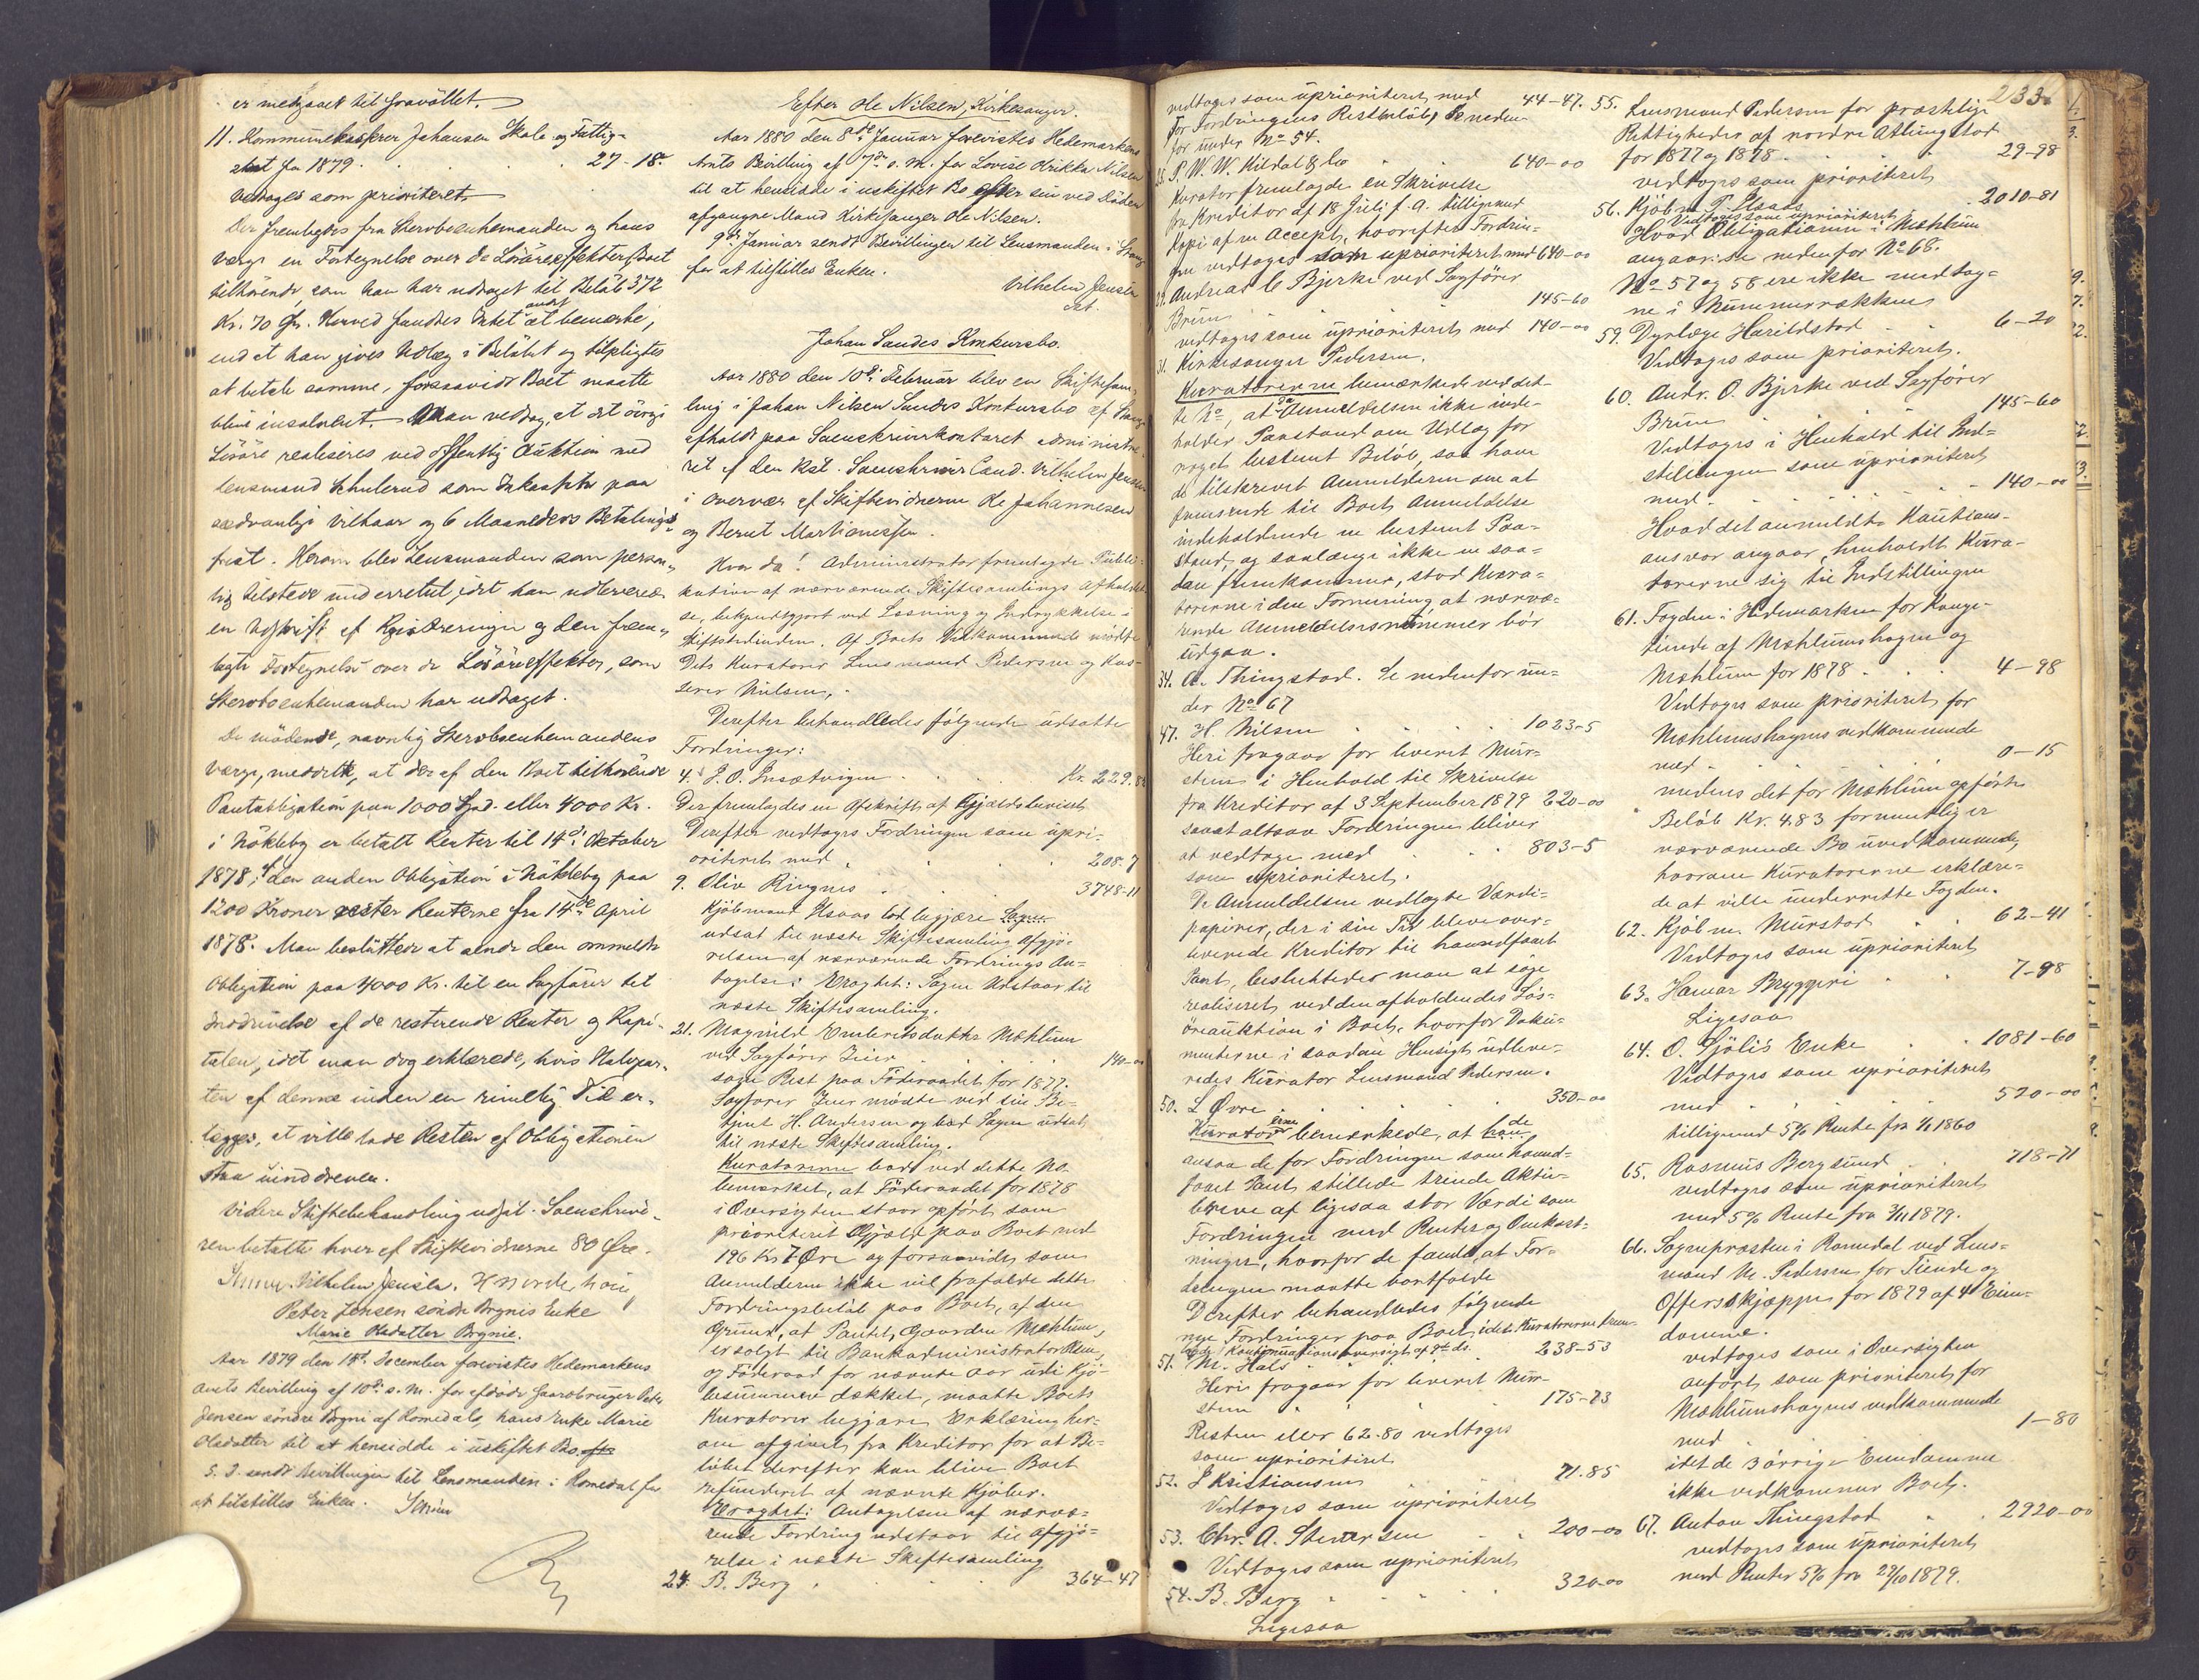 er medgaaet til gravøllet.
11. Kommunekasserer Johansen Skole og Fattig-
skat for 1879 27-18.
vedtoges som prioriteret
Der fremlagdes fra Stervboenkemanden og hans
værge en Fortegnelse over de Løsøreeffekter, Boet
tilhørende, som han har udtaget til Beløb 372
Kr. 70 Ør. Herved fandtes Intet andet at bemærke,
end at han gives Udlæg i Beløbet og tilpligtes
at betale samme, forsaavidt Boet maatte
blive insolvent. Man vedtog, at det øvrige
Løsøre realiseres ved offentlig Auktion med
lensmand Schulerud som Inkassator paa
sædvanlige Vilkaar og 6 Maaneders Betalings-
frist. Herom blev Lensmanden som person-
lig tilstede underrettet, idet han udleveredes
en Udskrift af Registreringen og den frem-
lagte Fortegnelse over de Løsøreeffekter, som
Stervboenkemanden har udtaget.
De mødende, navnlig Stervboenkemandens
Værge, meddelte, at der af den Boet tilhørende
Pantobligation paa 1000 Spd. eller 4000 Kr.
i Nøkleby er betalt Renter til 14de Oktober
1878; af den anden Obligation i Nøkleby paa
1200 Kroner rester Renterne fra 14de April
1878. Man besluttede at sende den ommeldte
Obligation paa 4000 Kr. til en Sagfører til
Inddrivelse af de resterende Renter og Kapi-
talen, idet man dog erklærede, hvis Halvpar-
ten af denne inden en rimelig Tid er-
lægges, at ville lade Resten af Obligationen
staa uinddreven.
Videre Skiftebehandling udsat. Sorenskrive-
ren betalte hver af Skiftevidnerne 80 Øre.
Vilhelm Jensen.
Peter Jensen søndre Brynis Enke
Marie Olsdatter Brynie.
Aar 1879 den 15de December forevistes Hedemarkens
Amts Bevilling af 10de s. M. for afdøde Gaardbruger Peter
Jensen søndre Bryni af Romedals hans Enke Marie
Olsdatter til at hensidde i uskiftet Bo
S. D. sendt Bevillingen til Lensmanden i Romedal for
at tilstilles Enken.
Efter Ole Nilsen, Kirkesanger.
Aar 1880 den 8de Januar forevistes Hedemarkens
Amts Bevilling af 7de s. M. for Lovise Ulrikke Nilsen
til at hensidde i uskiftet Bo efter sin ved Døden
afgangne Mand Kirkesanger Ole Nilsen.
9de Januar sendt Bevillingen til Lensmanden i Stange
for at tilstilles Enken.
Vilhelm Jensen
cst.
Johan Sandes Konkursbo.
Aar 1880 den 10de Februar blev en Skiftesam-
ling i Johan Nilsen Sandes Konkursbo af Stange
afholdt paa Sorenskriverkontoret administre-
ret af den kst. Sorenskriver Cand. Vilhelm Jensen
i Overvær af Skiftevidnerne Ole Johannesen
og Bernt Martinussen.
Hvor da! Administrator fremlagde Publi-
kation af nærværende Skiftesamlings Afholdel-
se, bekjendtgjort ved Læsning og Indrykkelse i
Stiftstidenden. Af Boets Vedkommende mødte
Dets Kuratorer Lensmand Pedersen og Kas-
serer Nielsen.
Derefter behandledes følgende udsatte
Fordringer:
4. J. O. Kr. 229.8
Der fremlagdes en Afskrift af Gjældsbeviset
Derefter vedtoges Fordringen som upri-
oriteret med 208-7
9. Oliv Ringnes 3748-11
Kjøbmand Usaas lod begjære Sagen
udsat til næste Skiftesamling Afgjø-
relsen af nærværende Fordrings An-
tagelse: Eragtet: Sagen Udstaar til
næste Skiftesamling.
21. Magnild Embretsdatter Mæhlum
ved Sagfører 140-00
som Rest paa Føderaadet for 1877.
Sagfører mødte ved sin Be-
tjent H. Andersen og bad Sagen udsat
til næste Skiftesamling.
Kuratorerne havde ved dette No.
bemærket, at Føderaadet for 1878
i Oversigten staar opført som
prioriteret Gjæld paa Boet med
196 Kr. 7 Øre og forsaavidt som
Anmelderen ikke vil frafalde dette
Fordringsbeløb paa Boet, af den
Grund, at Pantet, Gaarden Mæhlum,
er solgt til Bankadministrator
og Føderaad for nævnte Aar udi Kjø-
besummen dækket, maatte Boets
Kuratorer begjære Erklæring her-
om afgivet fra Kreditor for at Be-
løbet derefter kan blive Boet
refunderet af nævnte Kjøber.
Eragtet: Antagelsen af nærvæ-
rende Fordring udstaar til Afgjø-
relse i næste Skiftesamling
24. B. Berg 364-47
233
vedtoges som uprioriteret med 44-47.
For Fordringens Restbeløb, se neden-
for under No 54.
P. W. W. Kildal & Co 640-00
Kurator fremlagde en Skrivelse
fra Kreditor af 18 Juli f. A. tilligemed
Kopi af en Accept, hvorefter Fordrin-
gen vedtoges som uprioriteret med 640-00
Andreas O. Bjerke ved Sagfører
Brun 145-60
vedtoges som uprioriteret med 140-00
31. Kirkesanger Pedersen.
Kuratorerne bemærkede ved det-
te No, at da Anmeldelsen ikke inde-
holder Paastand om Udlæg for
noget bestemt Beløb, saa have
de tilskrevet Anmelderen om at
fremsende til Boet Anmeldelse
indeholdende en bestemt Paa-
stand, og saalænge ikke en saa-
dan fremkommer, stod Kura-
torerne i den Formening, at nærvæ-
rende Anmeldelsesnummer bør
udgaa.
34. A. Thingstad. Se nedenfor un-
der No 67
47. H. Nilsen 1023-5
Heri fragaar for leveret Mur-
sten i Henhold til Skrivelse
fra Kreditor af 3 September 1879 220-00
saaat altsaa Fordringen bliver
at vedtage med 803-5
som uprioriteret.
De Anmeldelsen vedlagte Værdi-
papirer, der i sin Tid bleve over-
leverede Kreditor til haandfaaet
Pant, besluttedes man at søge
realiseret ved den afholdendes Løs-
øreauktion i Boet, hvorfor Doku-
menterne i saadan Hensigt udleve-
redes Kurator Lensmand Pedersen.
50. L. Øvre 350-00
Kuratorerne bemærkede, at de
ansaa de for Fordringen som haand-
faaet Pant stillede trende Aktie-
breve af ligesaa stor Værdi som
Fordringen med Renter og Omkost-
ninger, hvorfor de fandt, at For-
dringen maatte bortfalde
Derefter behandledes følgende
nye Fordringer paa Boet, idet Kuratorerne frem-
lagde Kontinuationsoversigt af ds.
51. M. Hals 238-53
Heri fragaar for leveret Mur-
sten 175-73
Resten eller 62.80 vedtoges
som uprioriteret
52. Kristiansen 71.85
Vedtoges som uprioriteret
53. Chr. A. 200-00
Vedtoges som uprioriteret
54. B. Berg 320-00
Ligesaa
55. Lensmand Pedersen for præstelige
Rettigheder af nordre Atlungstad
for 1877 og 1878 29-98
vedtoges som prioriteret
56. Kjøbm. P. 2010-81
Vedtoges som uprioriteret
Hvad Obligationen i Mæhlum
angaar: se nedenfor No 68.
No 57 og 58 ere ikke medtag-
ne i Nummerrækken
59. Dyrlæge Harildstad 6-20
Vedtoges som prioriteret.
60. Andr. O. Bjerke ved Sagfører
Brun 145-60
Vedtoges i Henhold til Ind-
stillingen som uprioriteret
med 140-00
Hvad det anmeldte Kautions-
ansvar angaar, henholdt Kura-
torerne sig til Indstillingen
61. Fogden i Hedemarken for Konge-
tiende af Mæhlumshagen og
Mæhlum for 1878 4-98
Vedtoges som prioriteret for
Mæhlumshagens vedkommende
med 0-15
medens det for Mæhlum opførte
Beløb Kr. 4.83 formentlig er
nærværende Bo uvedkommende,
hvorom Kuratorerne erklære-
de at ville underrette Fogden.
62. Kjøbm. Murstad 62-41
Vedtoges som uprioriteret
63. Hamar Bryggeri 7-98
Ligesaa
64. O. Sjølis Enke 1081-60
Vedtoges som uprioriteret
med 520-00
tilligemed 5% Rente fra 1/1 1860
65. Rasmus Bergsund 718-71
vedtoges som uprioriteret
med 5% Rente fra 3/11 1879.
66. Sognepræsten i Romedal ved Lens-
mand M. Pedersen for Tiende og
Offerskjæppe for 1879 af 4 Eien-
domme.
vedtoges som i Oversigten
anført som prioriteret for
Mæhlumshagens vedkommende
med 1-80
idet de 3 øvrige Eiendomme
ikke vedkommer Boet.
67. Anton Thingstad 2920-00
vedtoges som uprioriteret
med Renter 5% fra 29/10 1879.